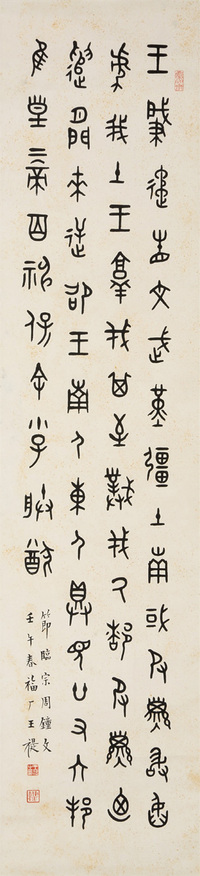 王肇遹省文武堇疆土南或𠬝孳敢臽
虐我土王𦎫伐其至𢾭伐厥都𠬝孳廼
遣閒來逆卲王南尸東尸具見廿又六邦
隹皇上帝百神保余小子朕猷
節臨宗周鐘文
壬午春福厂王禔